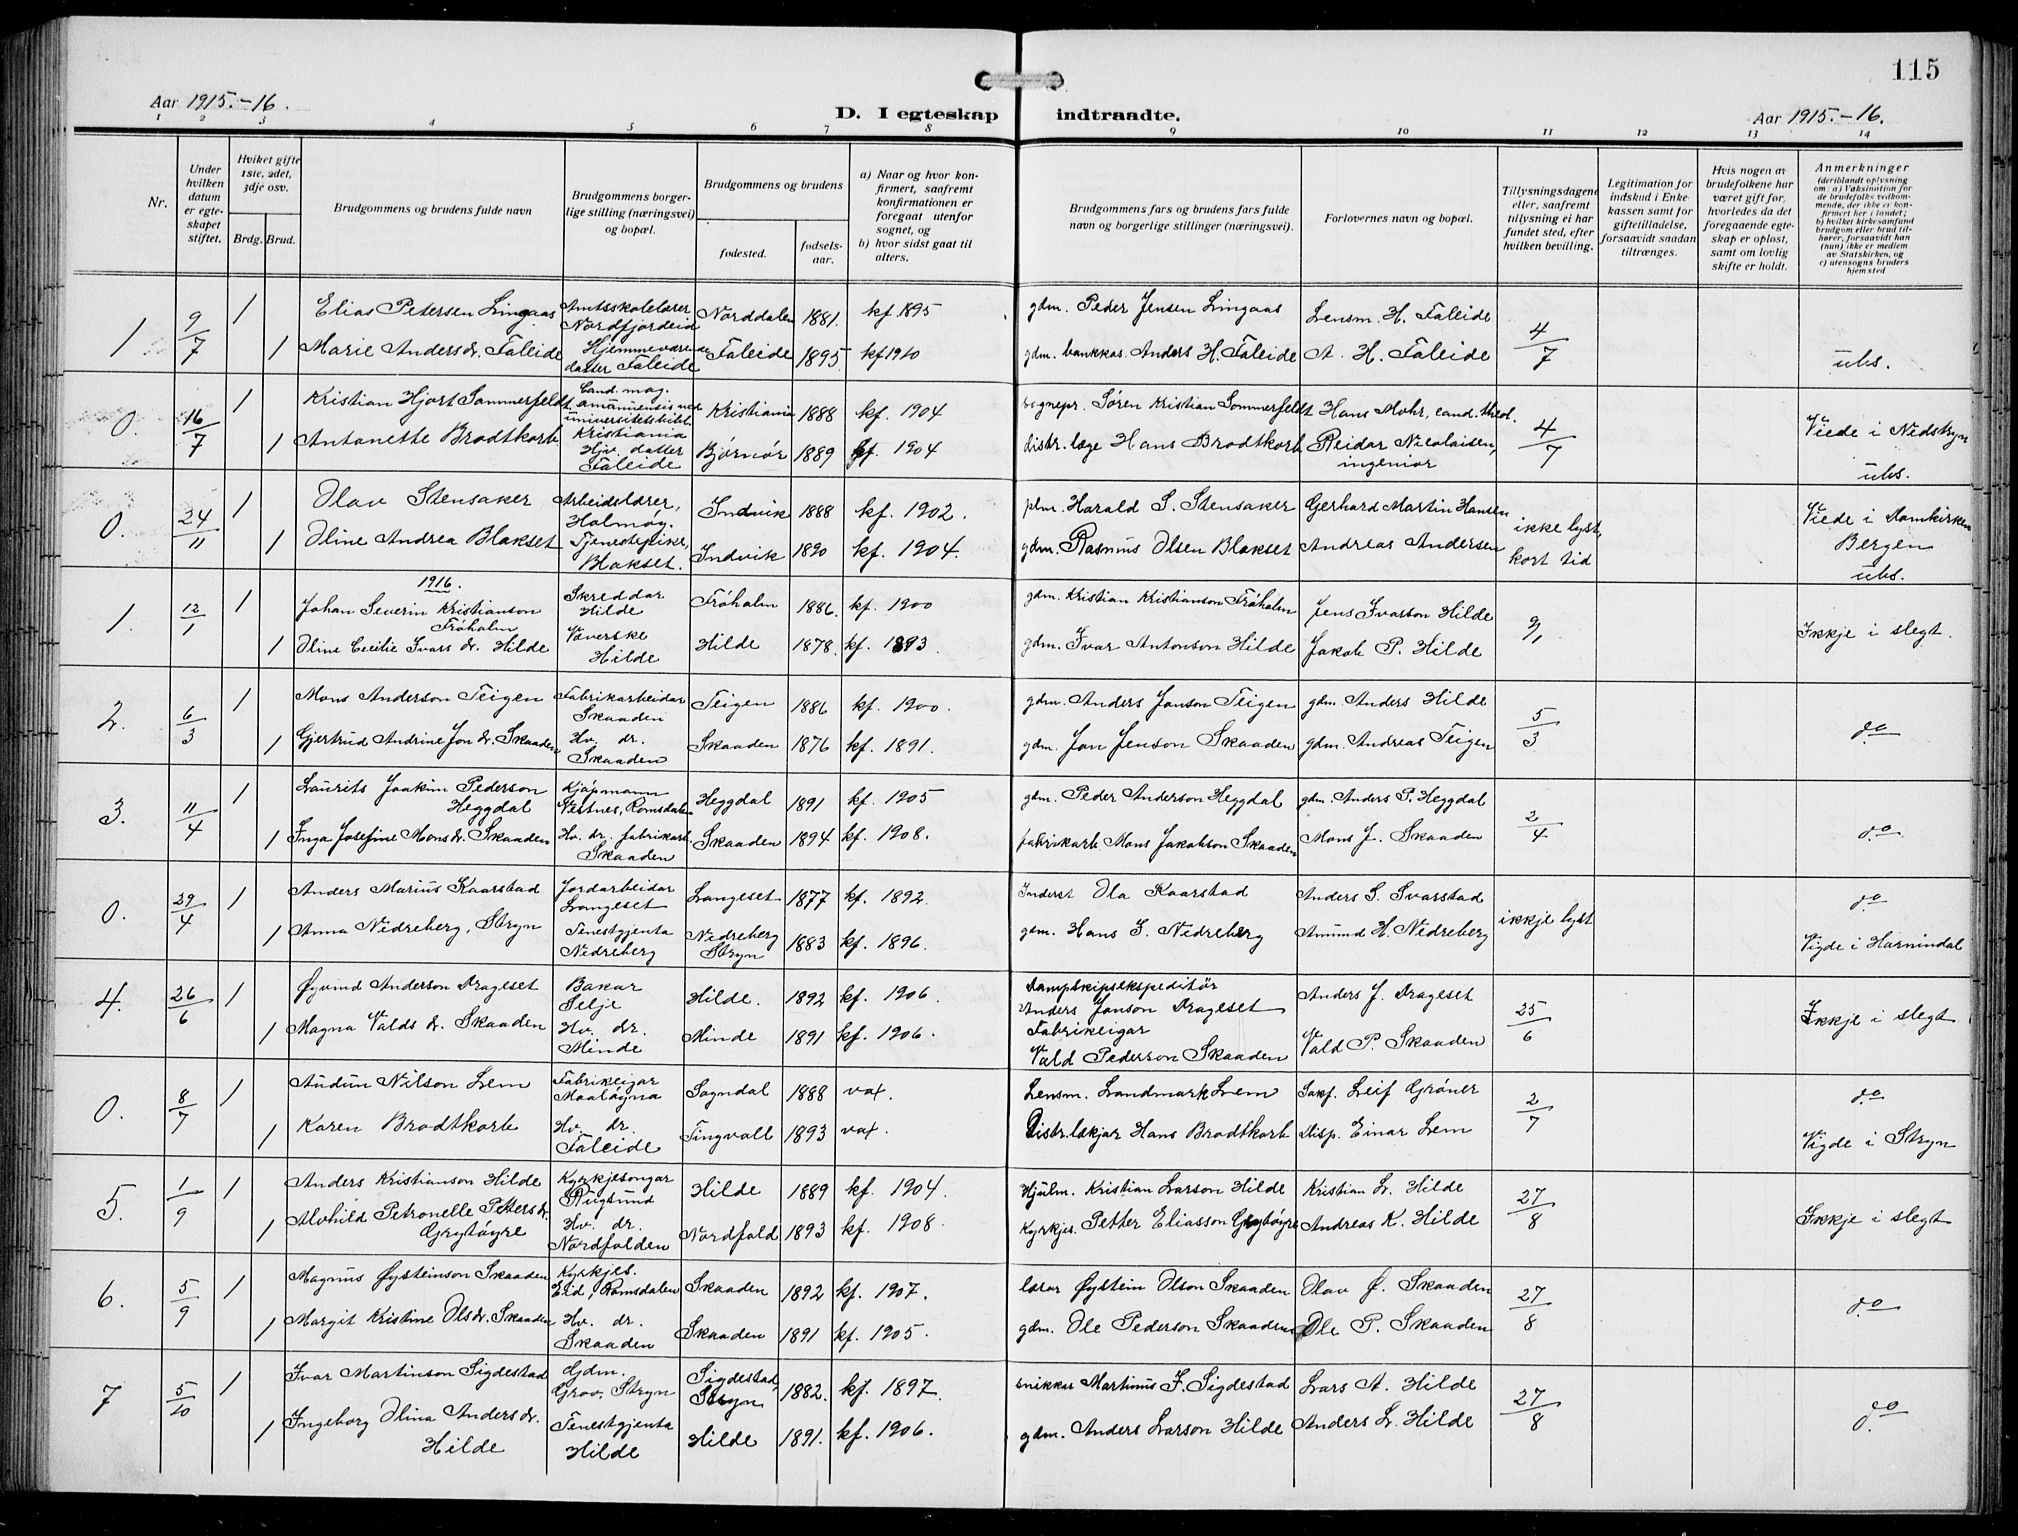 115
Aar 1915.-16.
D. I egteskap indtraadte.
Aar 1915.-16.
1 2 3 4 5 6 7 8 9 10 11 12 13 14
Nr.
Under hvilken datum er egteskapet stiftet.
Hvilket gifte 1ste, 2det, 3dje osv.
Brdg. Brud.
Brudgommens og brudens fulde navn
Brudgommens borgerlige stilling (næringsvei) og bopæl.
Brudgommens og brudens
fødested.
fødselsaar.
a) Naar og hvor konfirmert, saafremt konfirmationen er foregaat utenfor sognet, og
b) hvor sidst gaat til alters.
Brudgommens fars og brudens fars fulde navn og borgerlige stillinger (næringsvei).
Forlovernes navn og bopæl.
Tillysningsdagene eller, saafremt tillysning ei har fundet sted, efter hvilken bevilling.
Legitimation for indskud i Enkekassen samt for giftetilladelse, forsaavidt saadan tiltrænges.
Hvis nogen av brudefolkene har været gift før, hvorledes da det foregaaende egteskap er opløst, samt om lovlig skifte er holdt.
Anmerkninger
(deriblandt oplysning om: a) Vaksination for de brudefolks vedkommende, der ikke er konfirmert her i landet; b) hvilket kirkesamfund brudgom eller brud tilhører, forsaavidt han (hun) ikke er medlem av Statskirken, og c) utensogns bruders hjemsted
1 9/7 1 Elias Petersen Lingaas Amtsskolelærer Nordfjordeid Norddalen 1881. kf. 1895 gdm. Peder Jensen Lingaas Lensm. H. Faleide 4/7
1 Marie Andersdr. Faleide Hjemmeværende datter Faleide Faleide 1895 kf 1910 gdm. bankkas. Anders H. Faleide A. H. Faleide ubs.
0. 16/7 1 Kristian Hjort Sommerfeldt Cand. mag. amanuensis ved universitetsbibl. Kristiania Kristiania 1888 kf. 1904 sognepr. Søren Kristian Sommerfeldt Hans Mohr, cand. theol. 4/7 Viede i Nedstryn
1 Antonette Brodtkorb Hjv. datter Faleide Bjørnør 1889 kf. 1904 distr. læge Hans Brodtkorb Reidar Nicolaisen, ingeniør ubs.
0. 24/11 1 Olav Stensaker Arbeidslærer, Holmøy. Indvik 1888 kf. 1902. plm. Harald S. Stensaker Gerhard Martin Hansen ikke lyst, Viede i Domkirken Bergen
1 Oline Andrea Blakset Tjenestepike, Blakset. Indvik 1890 kf. 1904. gdm. Rasmus Olsen Blakset Andreas Andersen kort tid ubs.
1916.
1. 12/1 1 Johan Severin Kristianson Frøholm Skreddar Hilde Frøholm 1886. kf. 1900 gdm. Kristian Kristianson Frøholm Jens Ivarson Hilde 9/1
1 Oline Cecilie Ivars dr. Hilde Væverske Hilde Hilde 1878. kf. 1893. gdm. Ivar Antonson Hilde Jakob P. Hilde Ikkje i slegt.
2. 6/3 1 Mons Anderson Teigen Fabrikarbeidar Skaaden Teigen 1886 kf. 1900. gdm. Anders Jonson Teigen gdm. Anders Hilde 5/3 do
1 Gjertrud Andrine Jon dr. Skaaden Hv. dr. Skaaden Skaaden 1876 kf. 1891. gdm. Jon Jenson Skaaden gdm. Andreas Teigen
3. 11/4 1 Laurits Joakim Pederson Heggdal Kjøpmann Vestnes, Romsdalen Heggdal 1891 kf. 1905 gdm. Peder Anderson Heggdal gdm. Anders P. Heggdal 2/4
1 Inga Josefine Monsdr. Skaaden Hv. dr. fabrikarb. Skaaden Skaaden 1894 kf. 1908. fabrikarb Mons Jakobson Skaaden Mons J. Skaaden do
0. 29/4 1 Anders Marius Kaarstad Jordarbeidar Langeset Langeset 1877 kf. 1892. Inderst Ola Kaarstad Anders S. Svarstad ikkje lyst do
1 Anna Nedreberg, Stryn Tenestgjenta Nedreberg Nedreberg Stryn 1883 kf. 1896. gdm. Hans J. Nedreberg Amund H. Nedreberg Vigde i Hornindal
4. 26/6 1 Øyvind Anderson Drageset Bakar Selje Hilde. 1892 kf. 1906. Dampskipsekspeditør Anders Jonson Drageset Anders J. Drageset 25/6 Ikkje i slegt
1 Magna Valds dr. Skaaden Hv. dr. Minde Minde 1891 kf. 1906. Fabrikeigar Vald Pederson Skaaden Vald P. Skaaden
0. 8/7 1 Audun Nilson Lem Fabrikeigar Maaløyna Sogndal 1888 vax. Lensm. Landmark Lem Sakf. Leif Grøner 2/7 do
1 Karen Brodtkorb Hv. dr. Faleide Tingvoll 1893 vax. Distr. lækjar Hans Brodtkorb Disp. Einar Lem Vigde i Stryn
5. 1/9 1 Anders Kristianson Hilde Kyrkjesongar Rugsund Hilde 1889 kf. 1904. Hjulm. Kristian Larson Hilde Kristian L. Hilde 27/8 Ikkje i slegt
1 Alvhild Petronelle Petters dr. Grytøyre Hv. dr. Nordfolden Nordfold 1893 kf. 1908. Kyrkjes. Petter Eliasson Grytøyre Andreas K. Hilde
6. 5/9 1 Magnus Øysteinson Skaaden Kyrkjes. Eid, Romsdalen Skaaden 1892 kf. 1907. lærar Øystein Olson Skaaden Olav Ø. Skaaden 27/8 do
1 Margit Kristine Olsdr. Skaaden Hv. dr. Skaaden Skaaden 1891 kf. 1905. gdm. Ole Pederson Skaaden Ole P. Skaaden
7 5/10 1 Ivar Martinson Sigdestad Gdm. Grov, Stryn Sigdestad, Stryn 1882. kf. 1897. snikkar Martinus I. Sigdestad Lars A. Hilde 27/8
1 Ingeborg Olina Anders dr. Hilde Tenestgjenta Hilde Hilde 1891. kf. 1906. gdm. Anders Larson Hilde Anders L. Hilde do